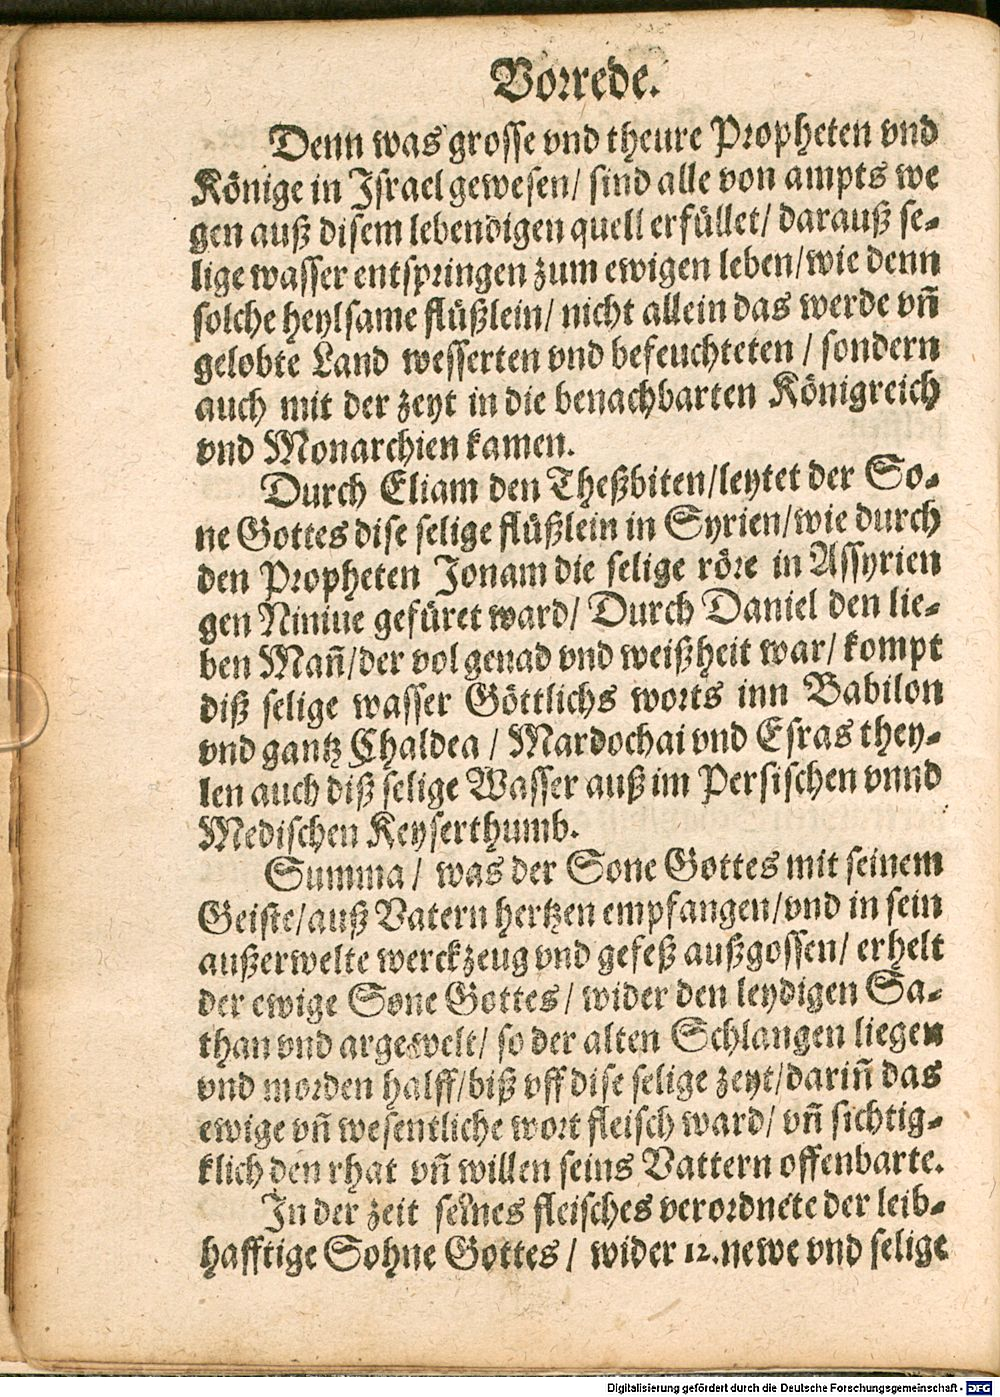 Vorrede.
Denn was grosse vnd theure Propheten vnd
Könige in Israel gewesen/ sind alle von ampts we
gen auß disem lebendigen quell erfüllet/ darauß se-
lige wasser entspringen zum ewigen leben/wie denn
solche heylsame flüßlein/ nicht allein das werde vñ
gelobte Land wesserten vnd befeuchteten / sondern
auch mit der zeyt in die benachbarten Königreich
vnd Monarchien kamen.
Durch Eliam den Theßbiten/leytet der So-
ne Gottes dise selige flüßlein in Syrien/wie durch
den Propheten Jonam die selige röre in Assyrien
gen Niniue gefüret ward/ Durch Daniel den lie-
ben Mañ/der vol genad vnd weißheit war/ kompt
diß selige wasser Göttlichs worts inn Babilon
vnd gantz Chaldea / Mardochai vnd Esras they-
len auch diß selige Wasser auß im Persischen vnnd
Medischen Keyserthumb.
Summa / was der Sone Gottes mit seinem
Geiste/auß Vatern hertzen empfangen/vnd in sein
außerwelte werckzeug vnd gefeß außgossen/ erhelt
der ewige Sone Gottes / wider den leydigen Sa-
than vnd arge welt/ so der alten Schlangen liegen
vnd morden halff/biß vff dise selige zeyt/dariñ das
ewige vñ wesentliche wort fleisch ward/ vñ sichtig-
klich den rhat vñ willen seins Vattern offenbarte.
In der zeit seines fleisches verordnete der leib-
hafftige Sohne Gottes / wider 12.newe vnd selige
Digitalisierung gefördert durch die Deutsche Forschungsgemeinschaft - DFG